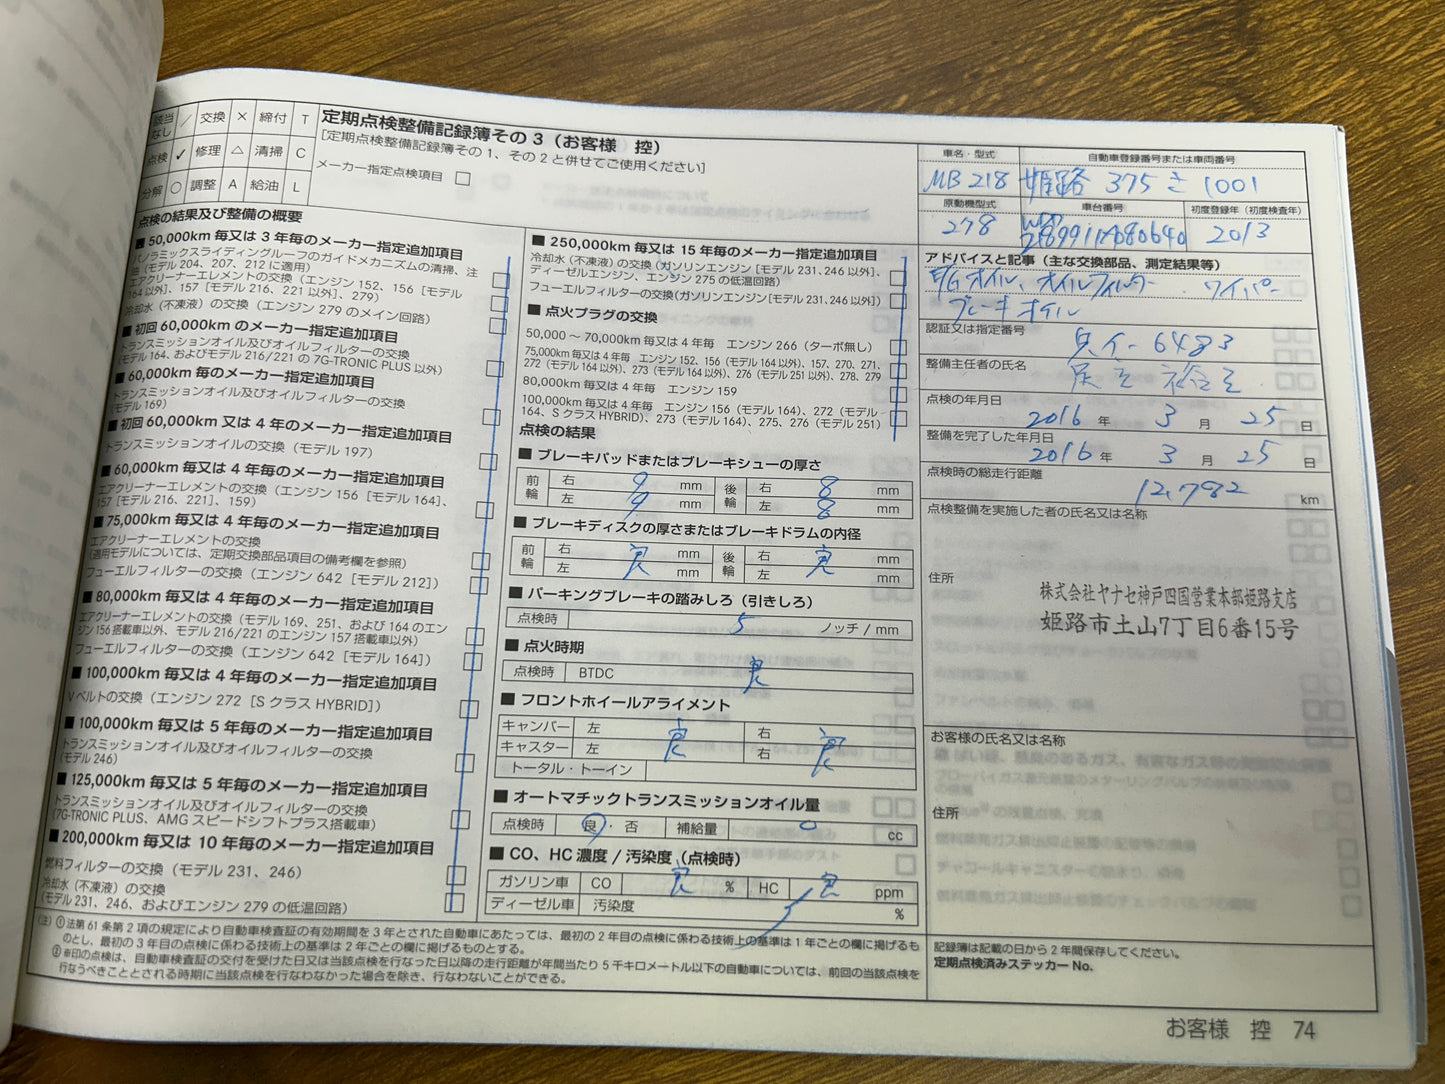 該当なし / 交換 × 締付 T
点検 ✓ 修理 △ 清掃 C
分解 ○ 調整 A 給油 L
定期点検整備記録簿その3（お客様 控）
［定期点検整備記録簿その1、その2と併せてご使用ください］
メーカー指定点検項目 □
点検の結果及び整備の概要
■ 50,000km 毎又は 3 年毎のメーカー指定追加項目
パノラミックスライディングルーフのガイドメカニズムの清掃、注
油（モデル 204、207、212 に適用）
エアクリーナーエレメントの交換（エンジン 152、156［モデル
164 以外］、157［モデル 216、221 以外］、279）
冷却水（不凍液）の交換（エンジン 279 のメイン回路）
■ 初回 60,000km のメーカー指定追加項目
トランスミッションオイル及びオイルフィルターの交換
（モデル 164、およびモデル 216/221 の 7G-TRONIC PLUS 以外）
■ 60,000km 毎のメーカー指定追加項目
トランスミッションオイル及びオイルフィルターの交換
（モデル 169）
■ 初回 60,000km 又は 4 年毎のメーカー指定追加項目
トランスミッションオイルの交換（モデル 197）
■ 60,000km 毎又は 4 年毎のメーカー指定追加項目
エアクリーナーエレメントの交換（エンジン 156［モデル 164］、
157［モデル 216、221］、159）
■ 75,000km 毎又は 4 年毎のメーカー指定追加項目
エアクリーナーエレメントの交換
（適用モデルについては、定期交換部品項目の備考欄を参照）
フューエルフィルターの交換（エンジン 642［モデル 212］）
■ 80,000km 毎又は 4 年毎のメーカー指定追加項目
エアクリーナーエレメントの交換（モデル 169、251、および 164 のエン
ジン 156 搭載車以外、モデル 216/221 のエンジン 157 搭載車以外）
フューエルフィルターの交換（エンジン 642［モデル 164］）
■ 100,000km 毎又は 4 年毎のメーカー指定追加項目
V ベルトの交換（エンジン 272［S クラス HYBRID］）
■ 100,000km 毎又は 5 年毎のメーカー指定追加項目
トランスミッションオイル及びオイルフィルターの交換
（モデル 246）
■ 125,000km 毎又は 5 年毎のメーカー指定追加項目
トランスミッションオイル及びオイルフィルターの交換
（7G-TRONIC PLUS、AMG スピードシフトプラス搭載車）
■ 200,000km 毎又は 10 年毎のメーカー指定追加項目
燃料フィルターの交換（モデル 231、246）
冷却水（不凍液）の交換
（モデル 231、246、およびエンジン 279 の低温回路）
■ 250,000km 毎又は 15 年毎のメーカー指定追加項目
冷却水（不凍液）の交換（ガソリンエンジン［モデル 231、246 以外］、
ディーゼルエンジン、エンジン 275 の低温回路）
フューエルフィルターの交換（ガソリンエンジン［モデル 231、246 以外］）
■ 点火プラグの交換
50,000 ～ 70,000km 毎又は 4 年毎 エンジン 266（ターボ無し）
75,000km 毎又は 4 年毎 エンジン 152、156（モデル 164 以外）、157、270、271、
272（モデル 164 以外）、273（モデル 164 以外）、276（モデル 251 以外）、278、279
80,000km 毎又は 4 年毎 エンジン 159
100,000km 毎又は 4 年毎 エンジン 156（モデル 164）、272（モデル
164、S クラス HYBRID）、273（モデル 164）、275、276（モデル 251）
点検の結果
■ ブレーキパッドまたはブレーキシューの厚さ
前輪 右 9 mm 後輪 右 8 mm
左 9 mm 左 8 mm
■ ブレーキディスクの厚さまたはブレーキドラムの内径
前輪 右 良 mm 後輪 右 良 mm
左 mm 左 mm
■ パーキングブレーキの踏みしろ（引きしろ）
点検時 5 ノッチ / mm
■ 点火時期
点検時 BTDC 良
■ フロントホイールアライメント
キャンバー 左 良 右 良
キャスター 左 右
トータル・トーイン
■ オートマチックトランスミッションオイル量
点検時 良・否 補給量 0 cc
■ CO、HC 濃度 / 汚染度（点検時）
ガソリン車 CO 良 % HC 良 ppm
ディーゼル車 汚染度 %
（注）① 法第 61 条第 2 項の規定により自動車検査証の有効期間を 3 年とされた自動車にあたっては、最初の 2 年目の点検に係わる技術上の基準は 1 年ごとの欄に掲げるも
のとし、最初の 3 年目の点検に係わる技術上の基準は 2 年ごとの欄に掲げるものとする。
② ※印の点検は、自動車検査証の交付を受けた日又は当該点検を行なった日以降の走行距離が年間当たり 5 千キロメートル以下の自動車については、前回の当該点検を
行なうべきこととされる時期に当該点検を行なわなかった場合を除き、行なわないことができる。
車名・型式 自動車登録番号または車両番号
MB 218 姫路 375 さ 1001
原動機型式 車台番号 初度登録年（初度検査年）
278 2013
アドバイスと記事（主な交換部品、測定結果等）
E/Gオイル、オイルフィルター ワイパー
ブレーキオイル
認証又は指定番号 6483
整備主任者の氏名
点検の年月日
2016 年 3 月 25 日
整備を完了した年月日
2016 年 3 月 25 日
点検時の総走行距離
12,792 km
点検整備を実施した者の氏名又は名称
住所
株式会社ヤナセ神戸四国営業本部姫路支店
姫路市土山7丁目6番15号
お客様の氏名又は名称
住所
記録簿は記載の日から 2 年間保存してください。
定期点検済みステッカー No.
お客様 控 74